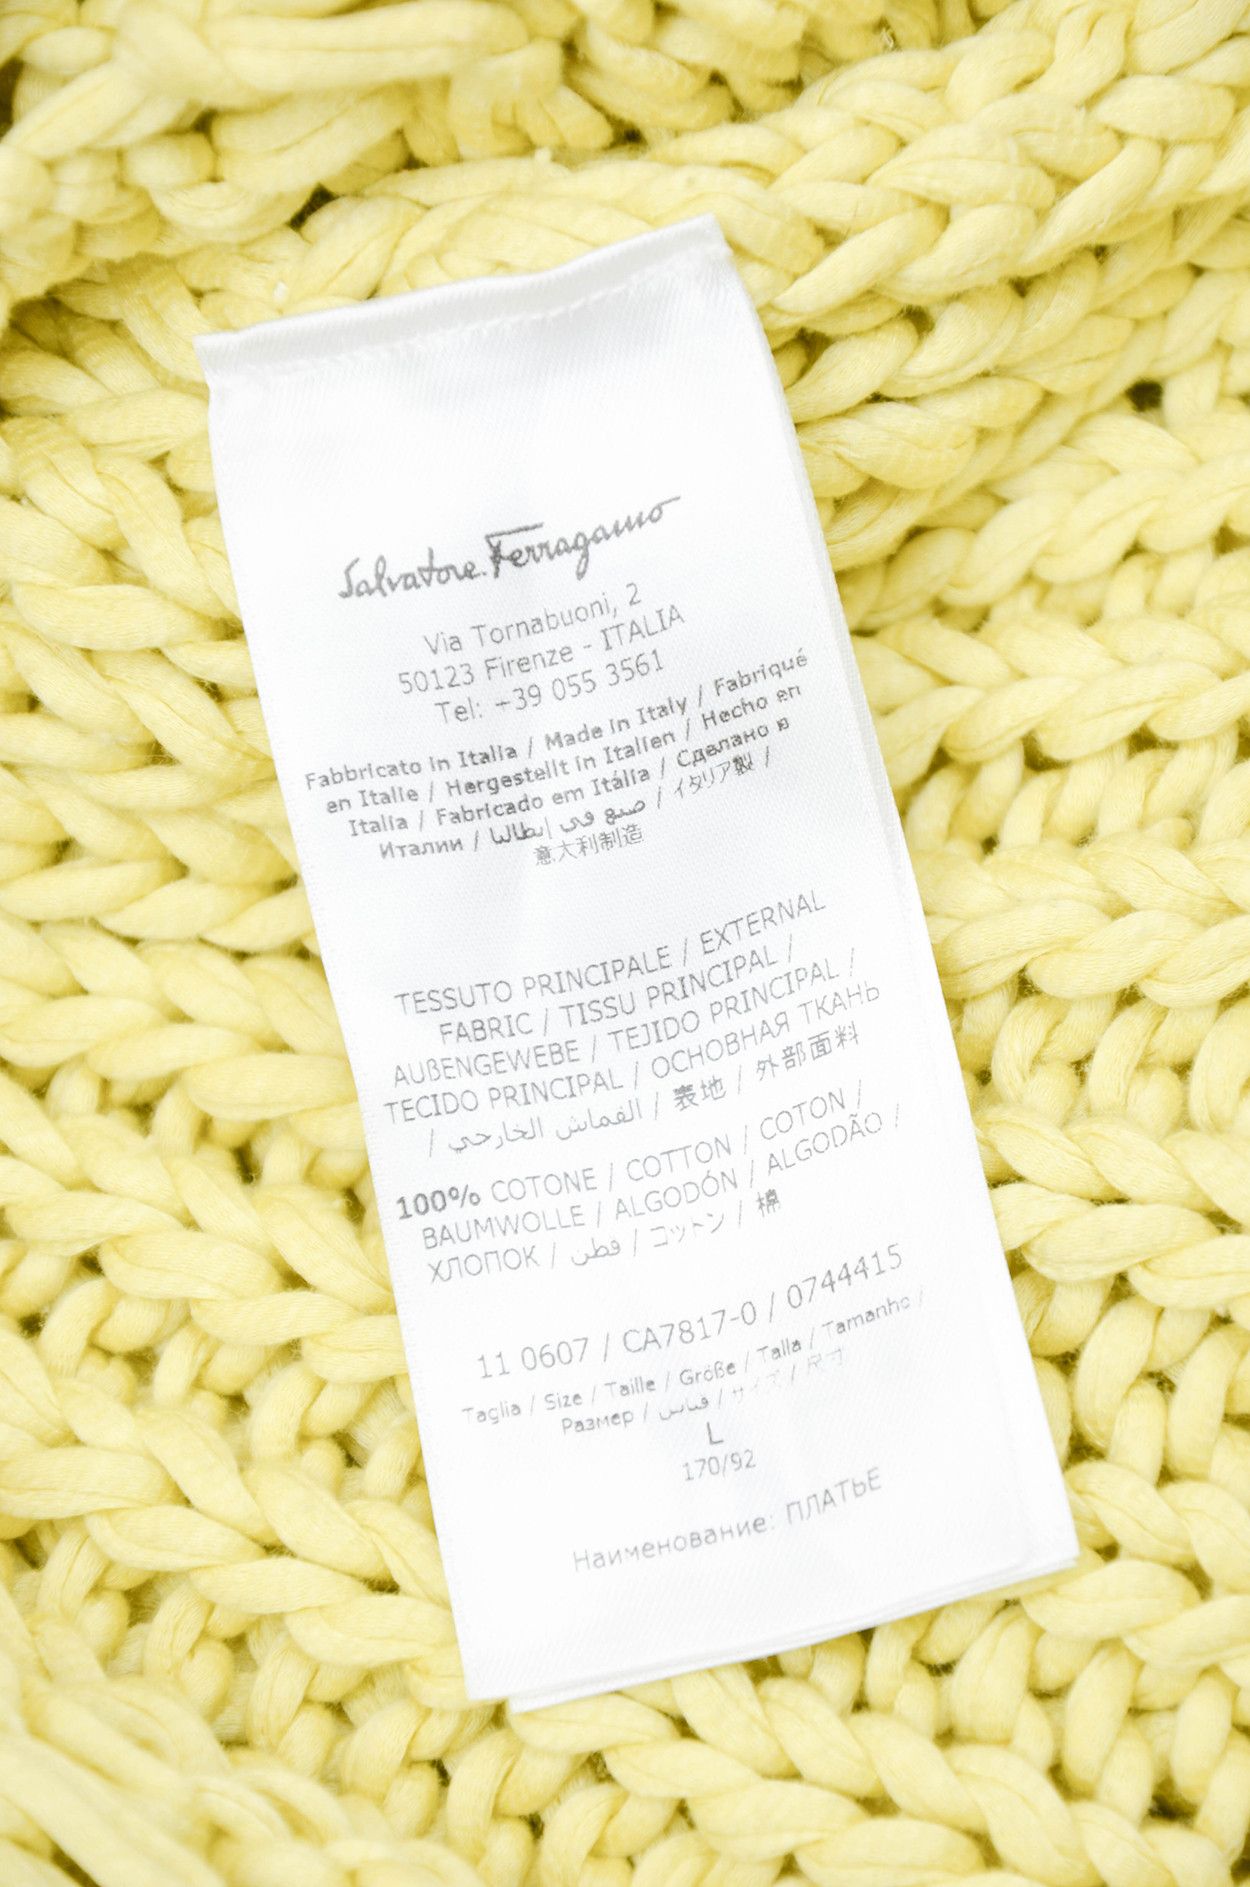 Salvatore Ferragamo
Via Tornabuoni, 2
50123 Firenze - ITALIA
Tel: +39 055 3561
Fabbricato in Italia / Made in Italy / Fabriqué
en Italie / Hergestellt in Italien / Hecho en
Italia / Fabricado em Itália / Сделано в
Италии / صنع في إيطاليا / イタリア製 /
意大利制造
TESSUTO PRINCIPALE / EXTERNAL
FABRIC / TISSU PRINCIPAL /
AUßENGEWEBE / TEJIDO PRINCIPAL /
TECIDO PRINCIPAL / ОСНОВНАЯ ТКАНЬ
/ القماش الخارجي / 表地 / 外部面料
100% COTONE / COTTON / COTON /
BAUMWOLLE / ALGODÓN / ALGODÃO /
ХЛОПОК / قطن / コットン / 棉
11 0607 / CA7817-0 / 0744415
Taglia / Size / Taille / Größe / Talla / Tamanho /
Размер / قياس / サイズ / 尺寸
L
170/92
Наименование: ПЛАТЬЕ